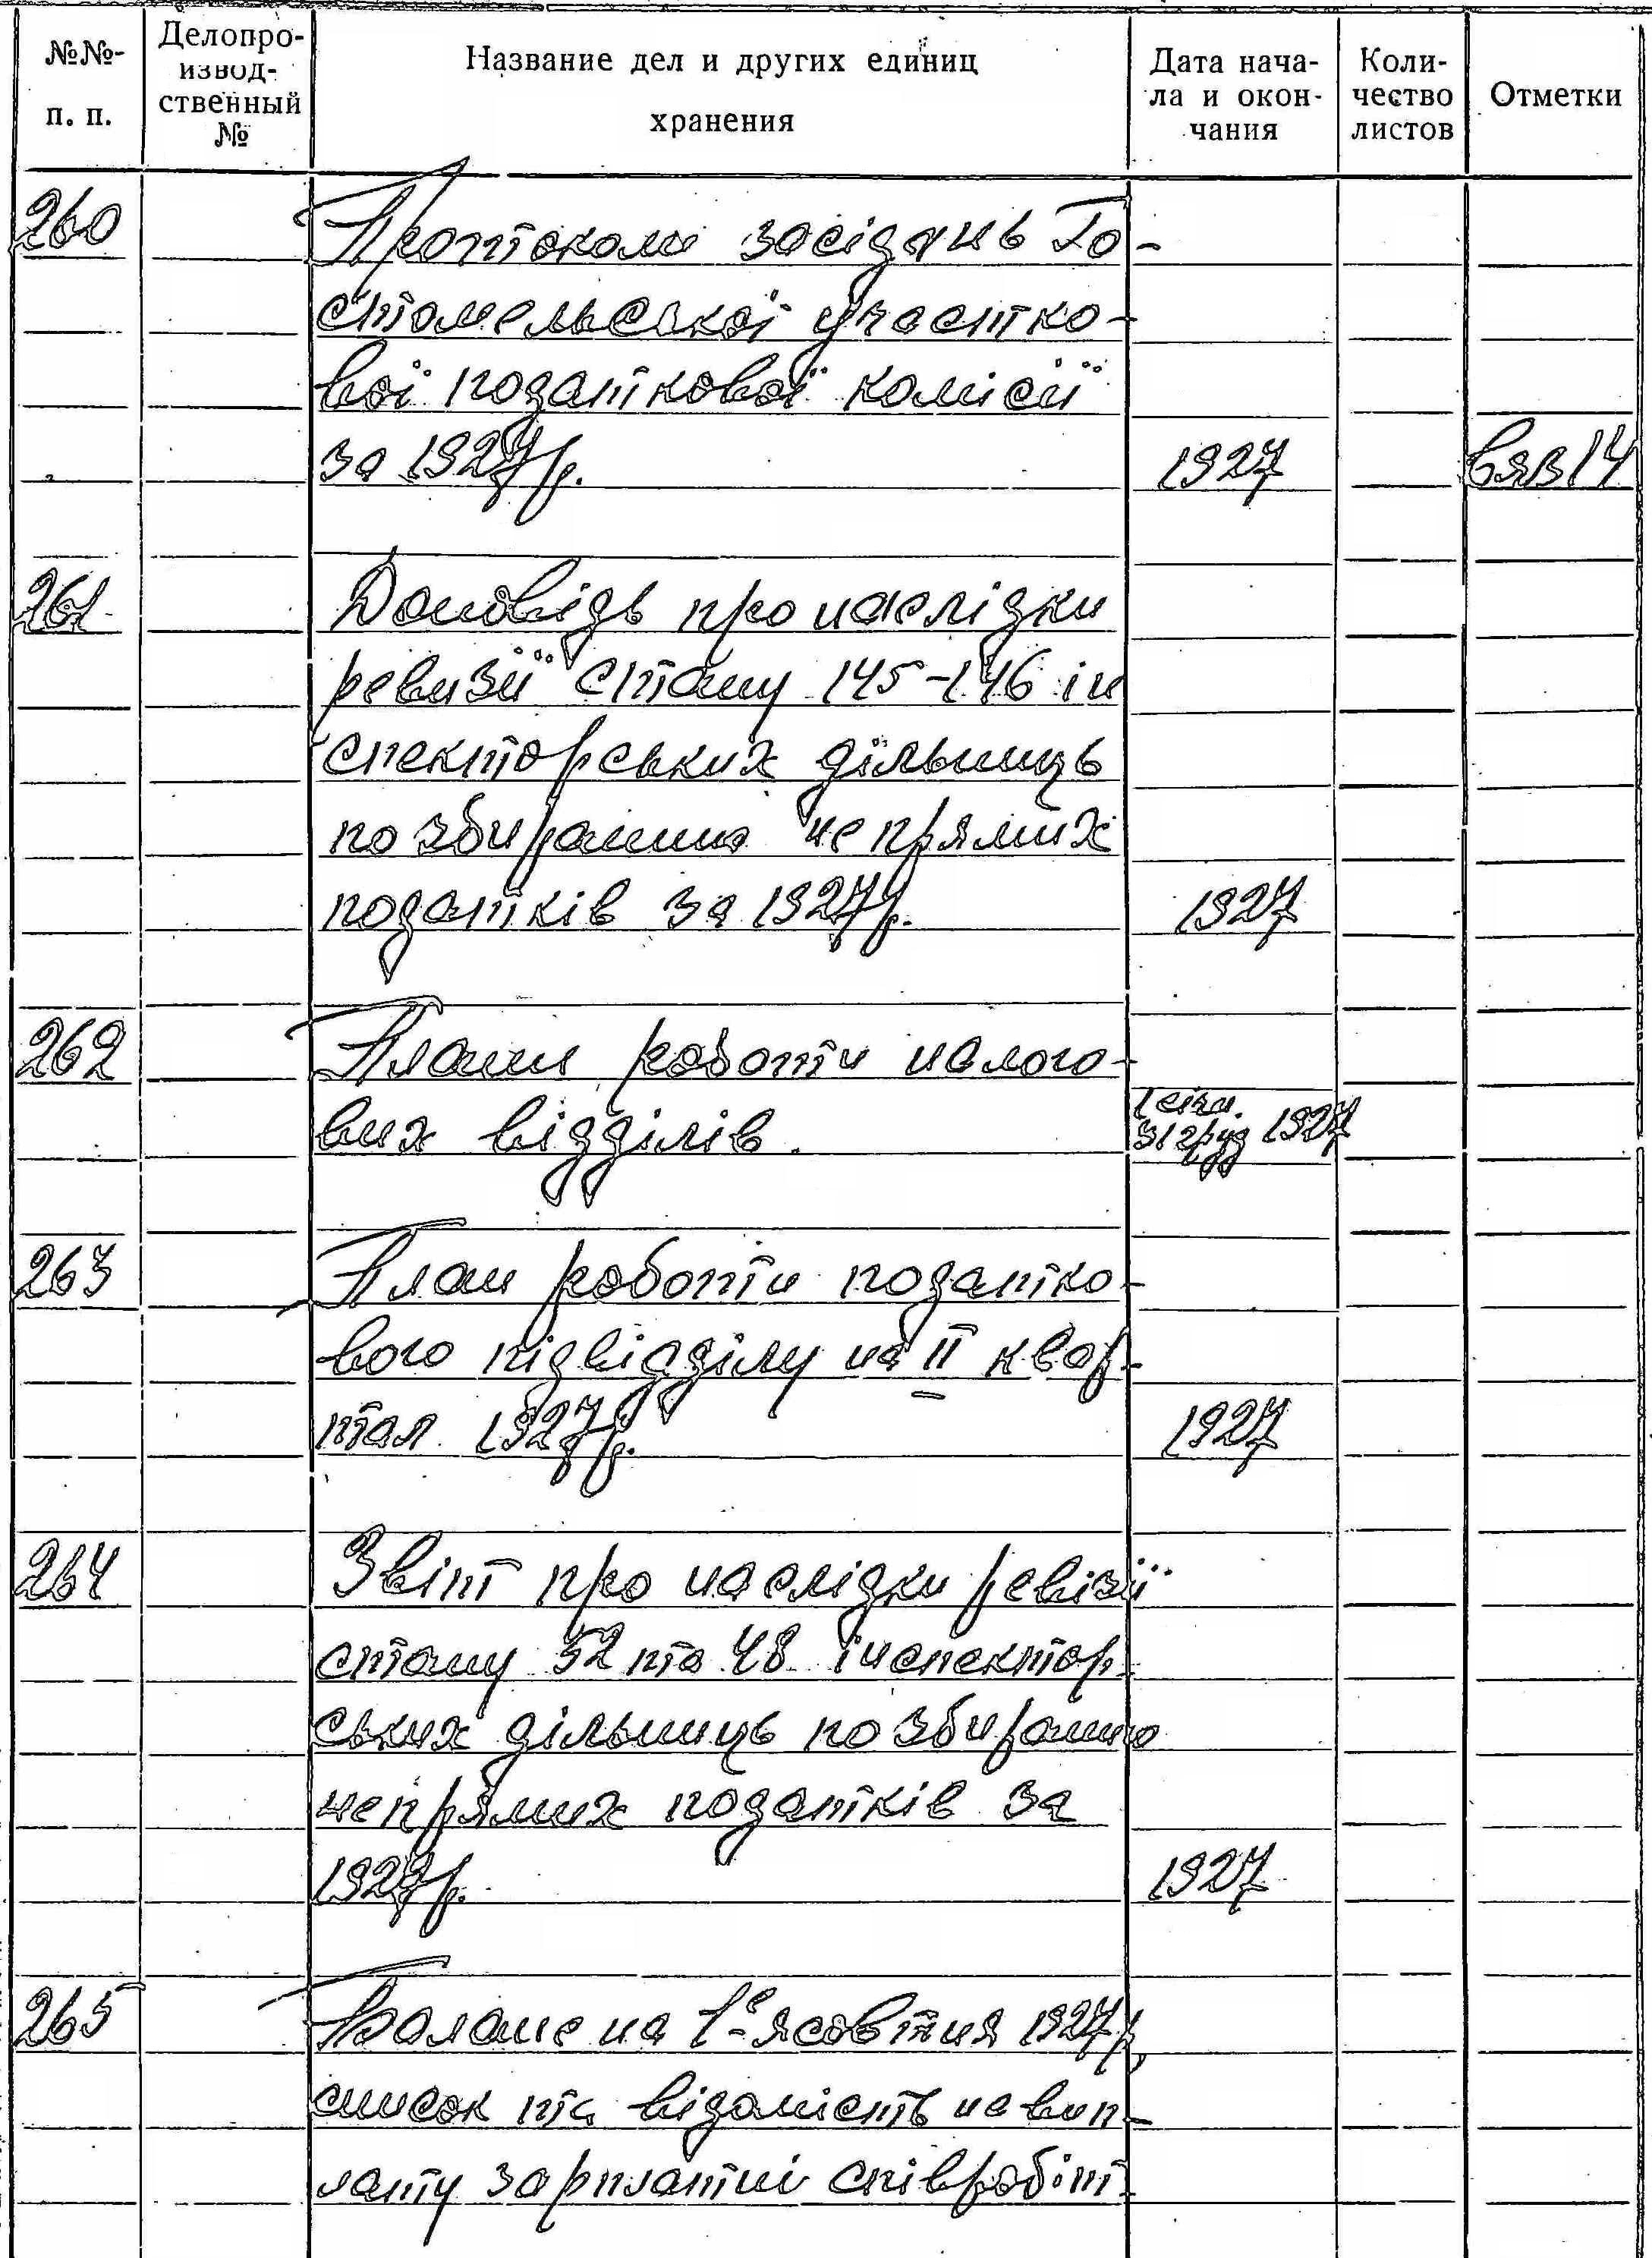 №№- п. п.
Делопро-
извод-
ственный
№
Название дел и других единиц
хранения
Дата нача-
ла и окон-
чания
Коли-
чество
листов
Отметки
260 Протоколи засідань Го-
стомельської участко-
вої податкової комісії
за 1927 р. 1927 Вяз 14
261 Доповідь про наслідки
ревизії стану 145-146 ін
спекторських дільниць
по збиранню непрямих
податків за 1927 р. 1927
262 Плани роботи налого-
1 січн.
вих відділів. 31 груд 1927
263 План роботи податко-
вого підвідділу на II квар-
тал 1927 р. 1927
264 Звіт про наслідки ревізії
стану 52 та 48 інспектор-
ських дільниць по збиранню
непрямих податків за
1927 р. 1927
265 Баланс на 1е жовтня 1927 р,
список та відомість на вип-
лату зарплатні співробіт-